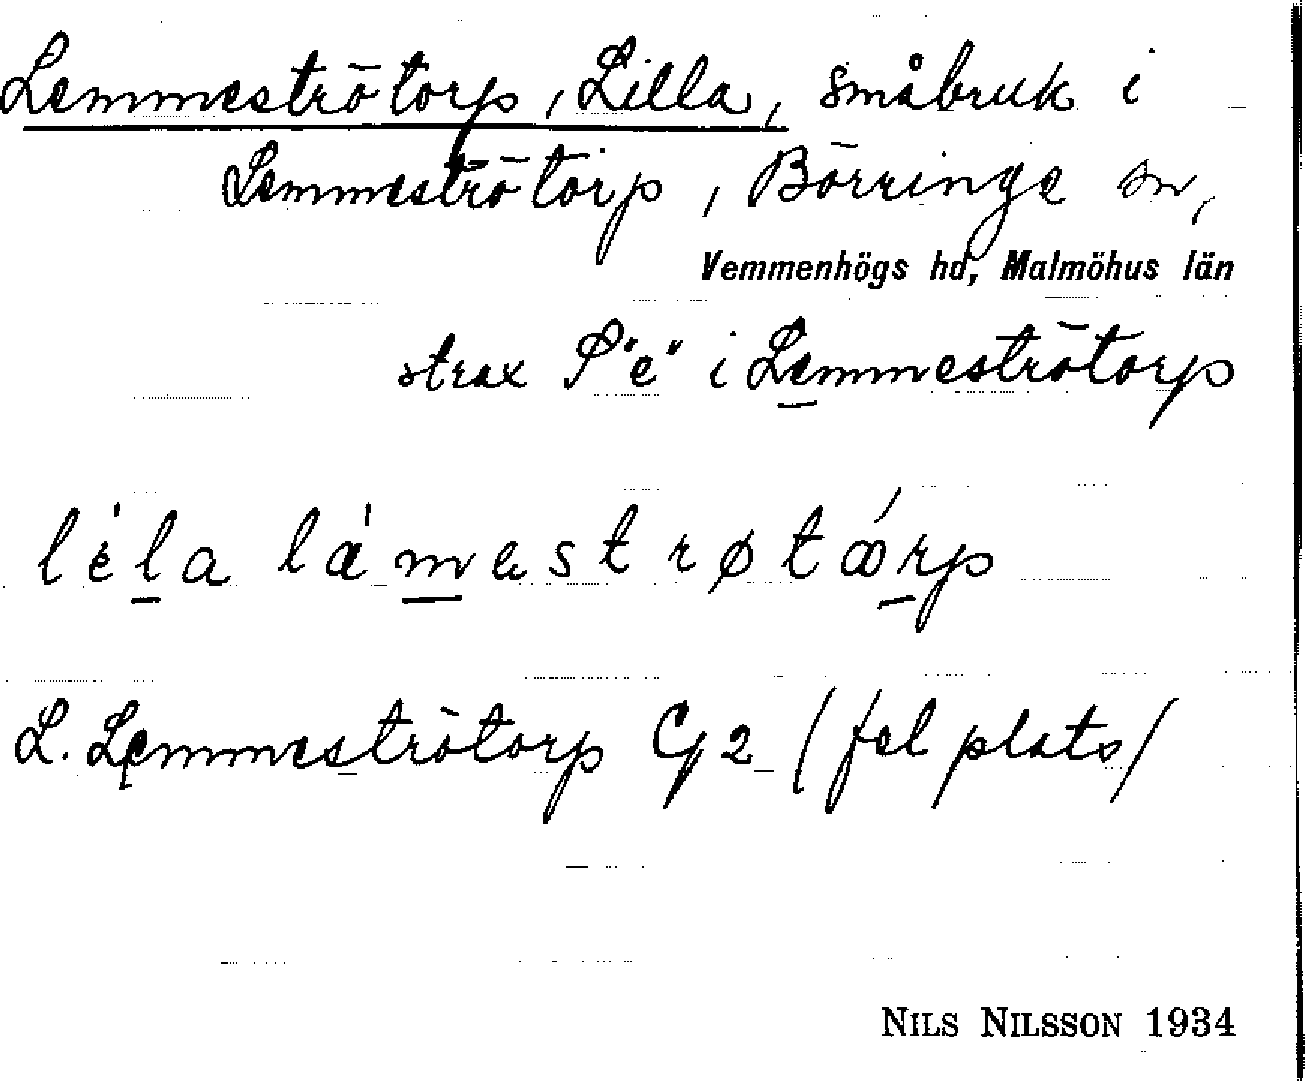 Lemmeströtorp, Lilla, småbruk i
Lemmeströtorp, Börringe sn,
Vemmenhögs hd, Malmöhus län
strax S "e" i Lemmeströtorp
lèla làmestrøtǿrp
L. Lemmeströtorp G2 /fel plats/
NILS NILSSON 1934